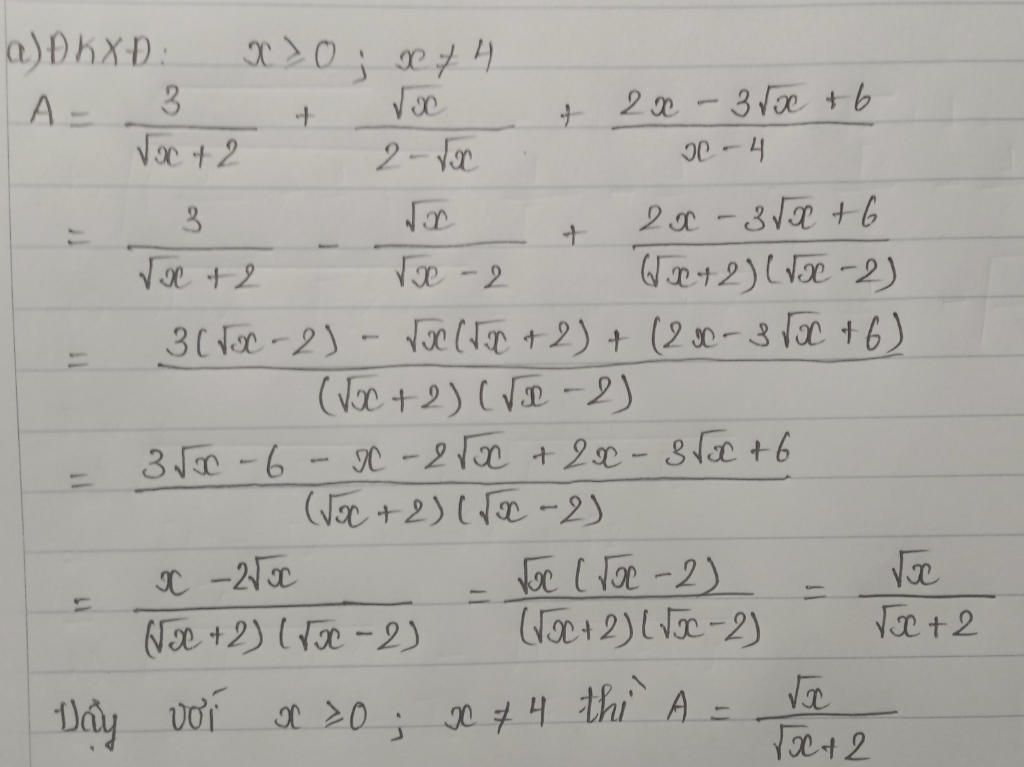 a) ĐKXĐ: x ≥ 0 ; x ≠ 4
A = 3/(√x + 2) + √x/(2 - √x) + (2x - 3√x + 6)/(x - 4)
= 3/(√x + 2) - √x/(√x - 2) + (2x - 3√x + 6)/((√x + 2)(√x - 2))
= (3(√x - 2) - √x(√x + 2) + (2x - 3√x + 6))/((√x + 2)(√x - 2))
= (3√x - 6 - x - 2√x + 2x - 3√x + 6)/((√x + 2)(√x - 2))
= (x - 2√x)/((√x + 2)(√x - 2)) = (√x(√x - 2))/((√x + 2)(√x - 2)) = √x/(√x + 2)
Vậy với x ≥ 0 ; x ≠ 4 thì A = √x/(√x + 2)